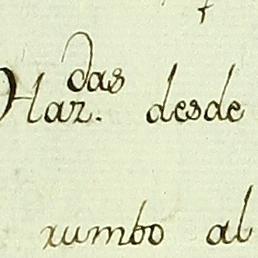 Haz.das desde
rumbo al